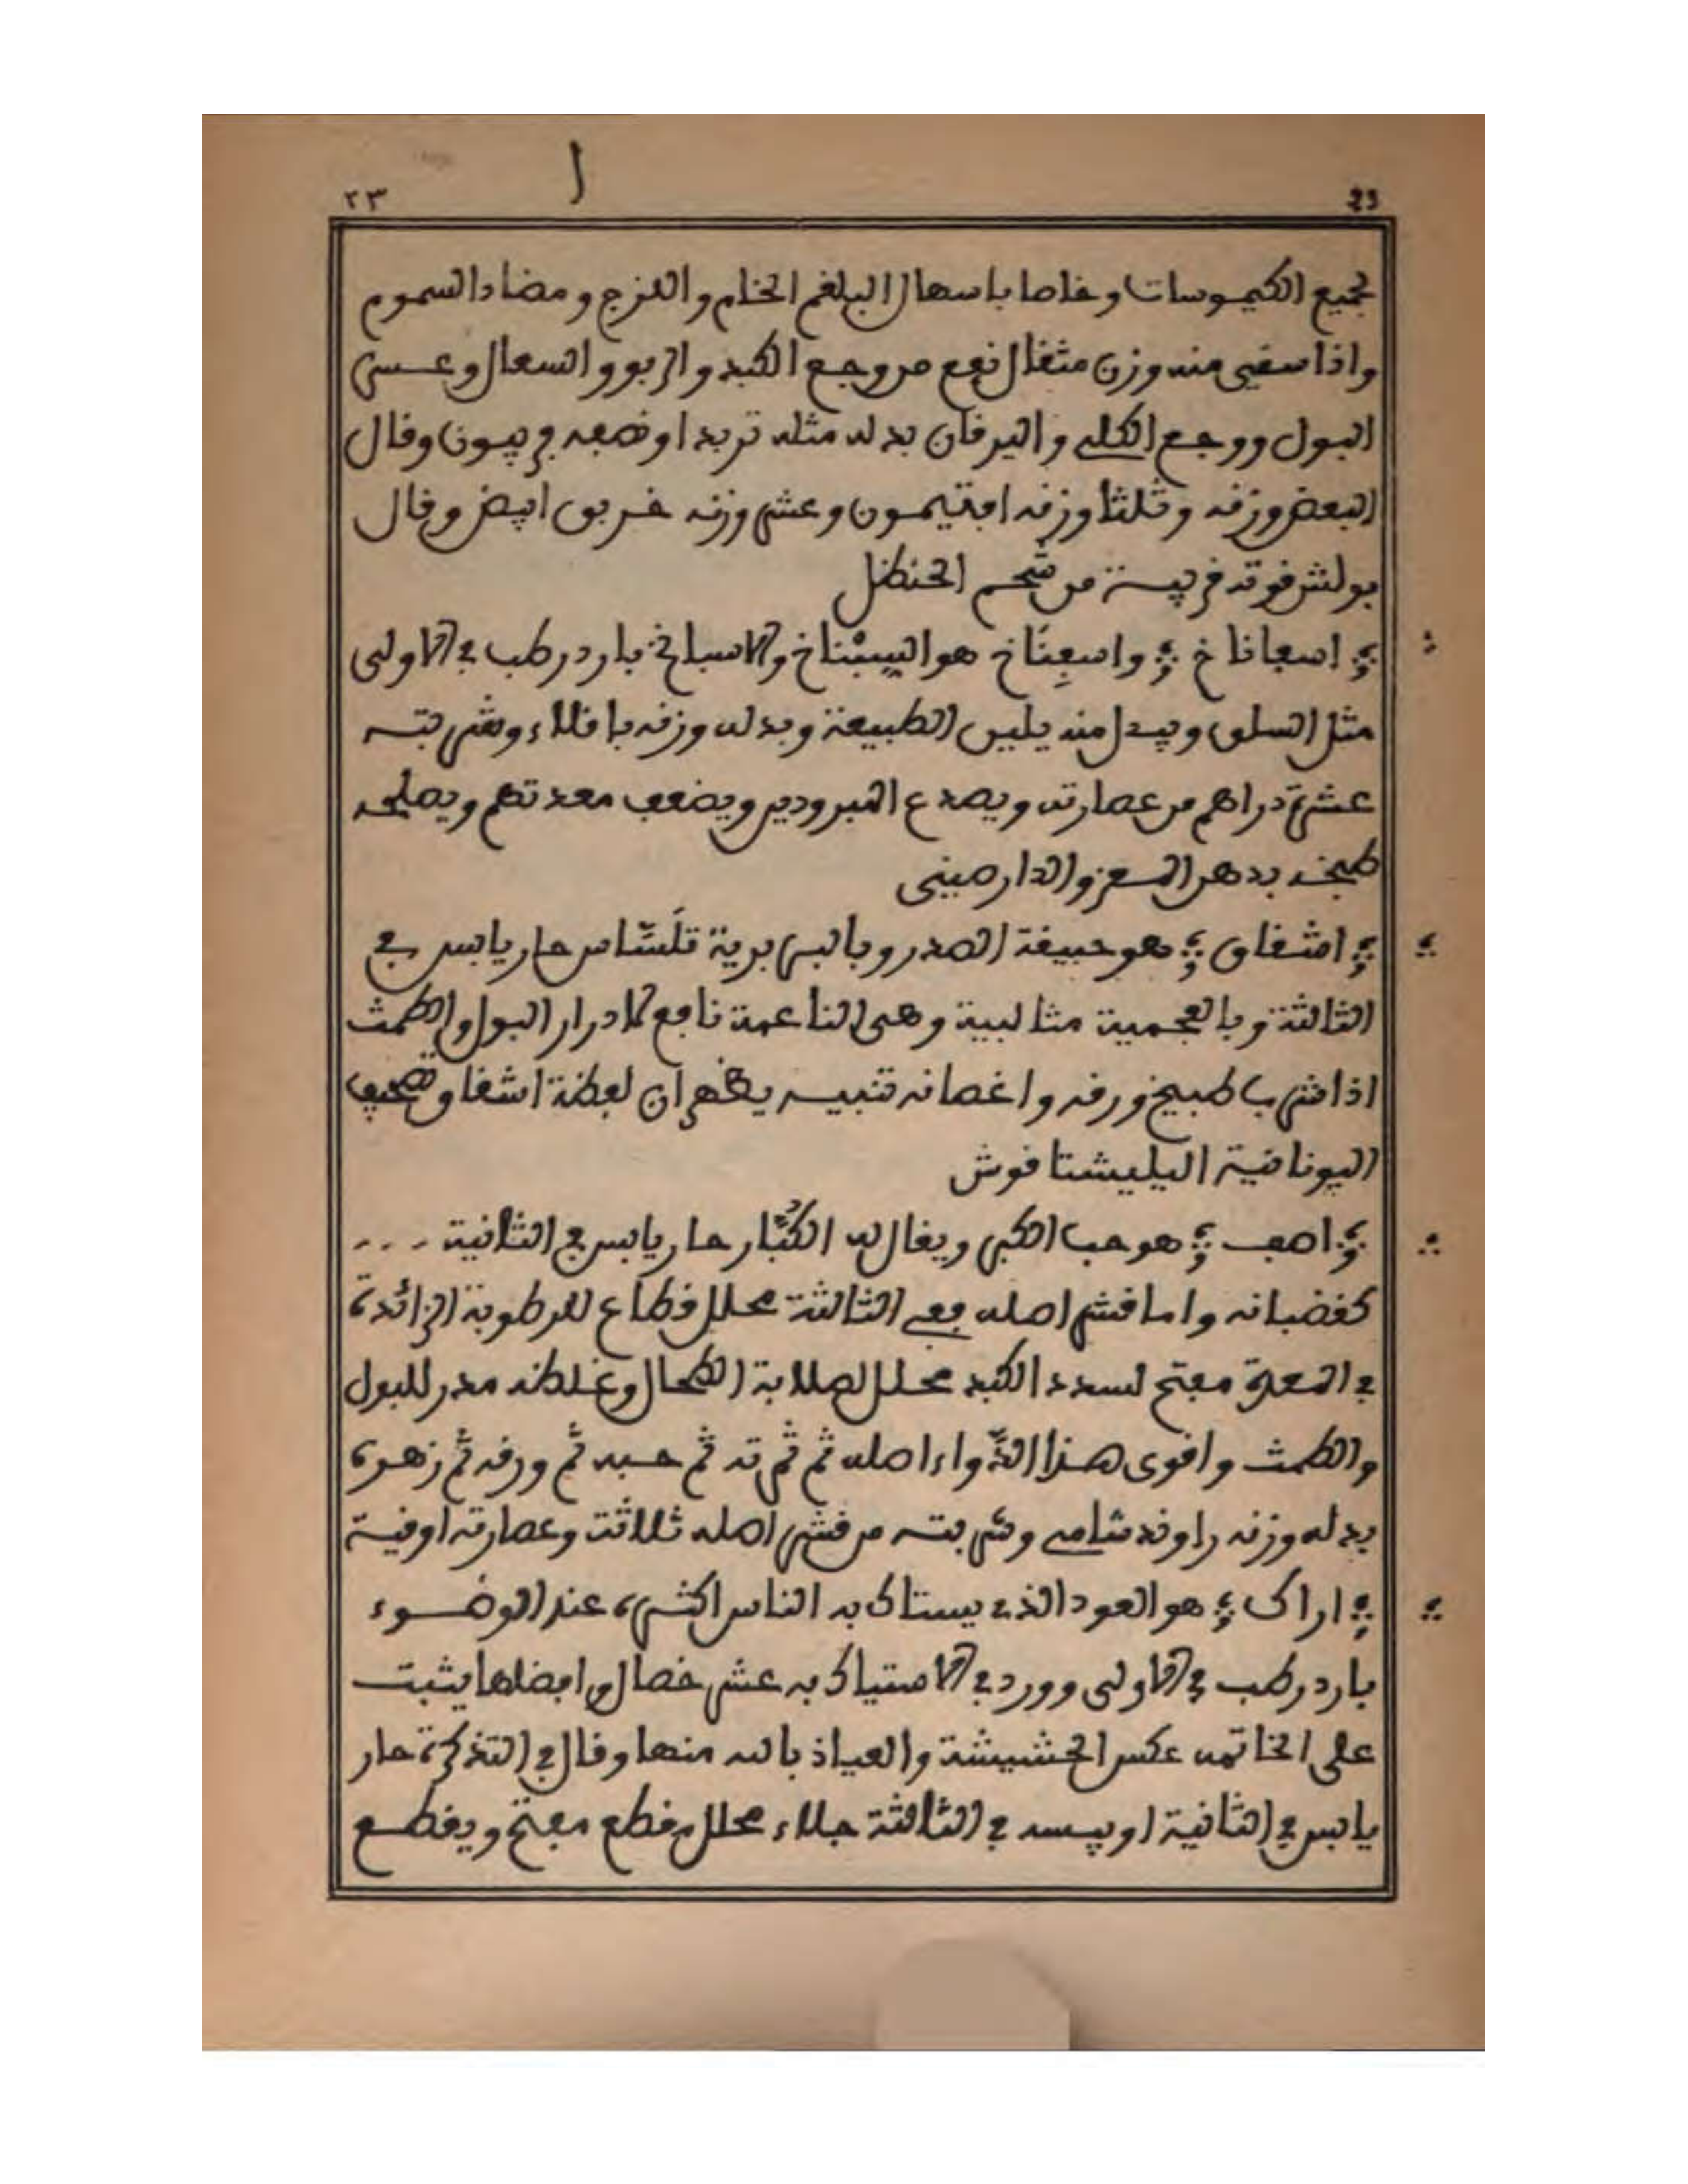 ٢٣ 23
لجميع الكيموسات وخاصا باسهال البلغم الخام واللزج ومضاد السموم
واذا سقي منه وزن مثقال نفع من وجع الكبد والربو والسعال وعسر
البول ووجع الكلى واليرقان بدله مثله تربد او نصفه فربيون وقال
البعض وزنه وثلثا وزنه افتيمون وعشر وزنه خربق ابيض وقال
بولش قوته قريبة من شحم الحنظل
اسفاناخ واسفِنَاخ هو السبيناخ والاسباخ بارد رطب في الاولى
مثل السلق وبدل منه يلين الطبيعة وبدله وزنه باقلاء وشربته
عشرة دراهم من عصارته ويصدع المبرودين ويضعف معدتهم ويصلحه
طبخه بدهن اللوز والدارصيني
اشفاق هو حبيقة الصدر وبالبربرية تلسّاس حار يابس في
الثالثة وبالعجمية مثالبية وهي الناعمة نافع لادرار البول والطمث
اذا شرب طبيخ ورقه واغصانه تنبيه يظهر ان لفظة اشفاق تصحيف
اليونانية اليليشتافوش
اصف هو حب الكبر ويقال له الكُبَّار حار يابس في الثانية ...
كقضبانه واما قشر اصله ففي الثالثة محلل قطاع للرطوبة الزائدة
في المعدة مفتح لسدد الكبد محلل لصلابة الطحال وغلظه مدر للبول
والطمث واقوى هذا الدَّواء اصله ثم ثمرته ثم حبه ثم ورقه ثم زهره
بدله وزنه راوند شامي وشربته من قشر اصله ثلاثة وعصارته اوقية
اراك هو العود الذي يستاك به الناس اكثره عند الوضوء
بارد رطب في الاولى وورد في الاستياك به عشر خصال وافضلها يثبت
على الخاتمه عكس الحشيشة والعياذ بالله منها وقال في التذكرة حار
يابس في الثانية او يبسه في الثالثة جلاء محلل مقطع مفتح ويقطع